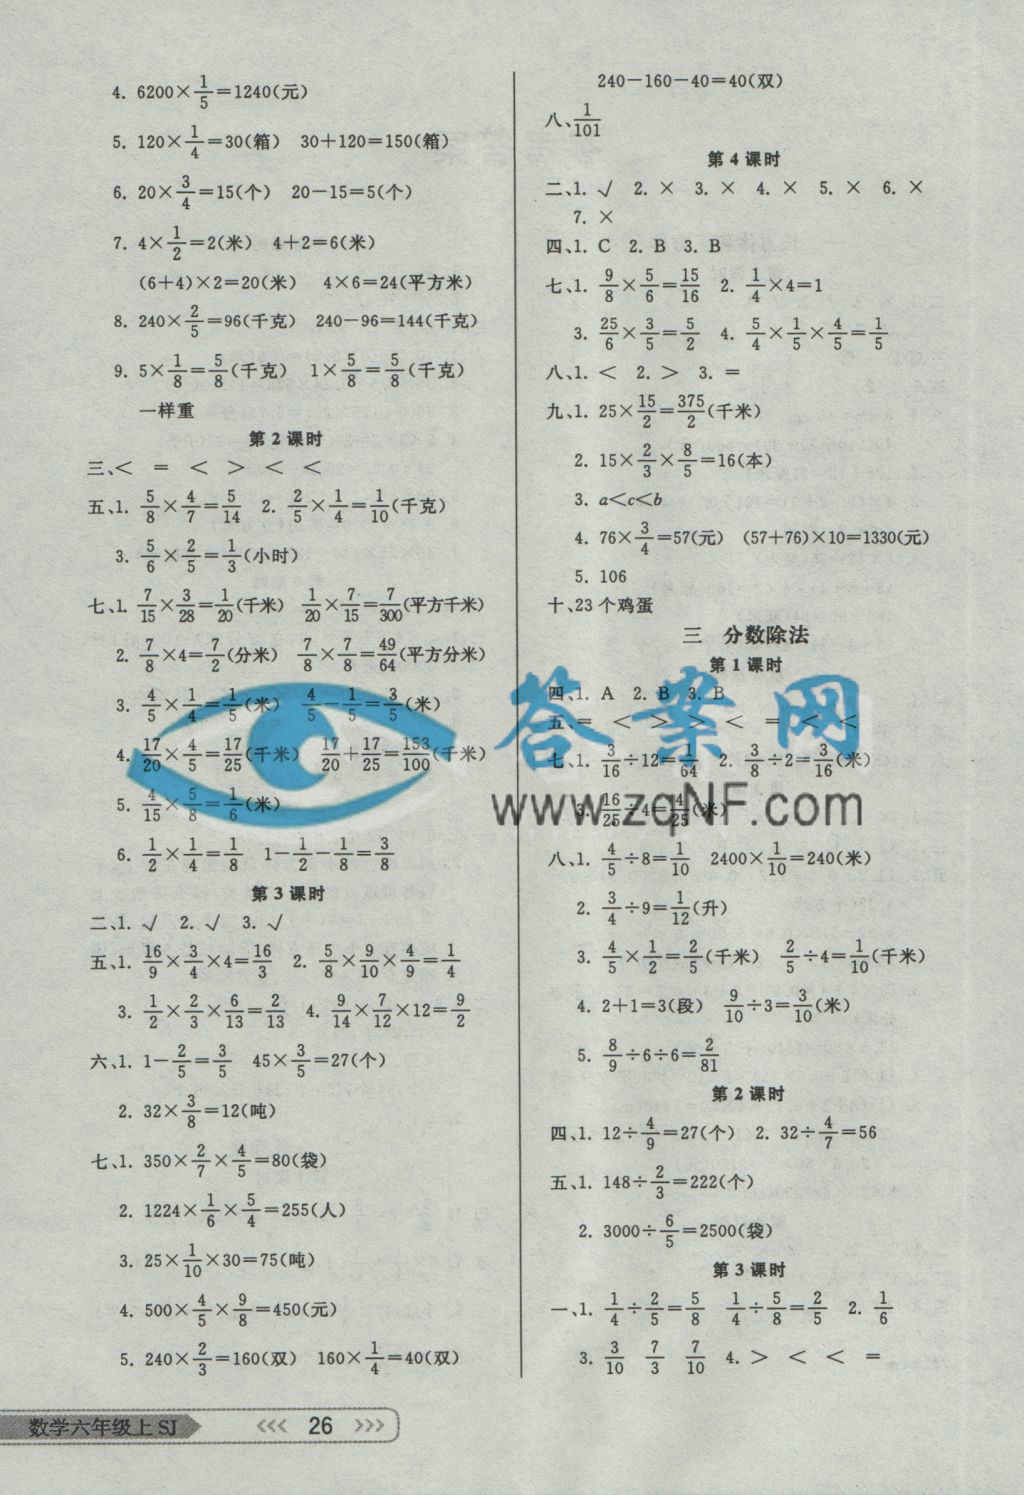 4. 6200×1/5=1240(元)
5. 120×1/4=30(箱) 30+120=150(箱)
6. 20×3/4=15(个) 20-15=5(个)
7. 4×1/2=2(米) 4+2=6(米)
(6+4)×2=20(米) 4×6=24(平方米)
8. 240×2/5=96(千克) 240-96=144(千克)
9. 5×1/8=5/8(千克) 1×5/8=5/8(千克)
一样重
第2课时
三、< = < > < <
五、1. 5/8×4/7=5/14 2. 2/5×1/4=1/10(千克)
3. 5/6×2/5=1/3(小时)
七、1. 7/15×3/28=1/20(千米) 1/20×7/15=7/300(平方千米)
2. 7/8×4=7/2(分米) 7/8×7/8=49/64(平方分米)
3. 4/5×1/4=1/5(米) 4/5-1/5=3/5(米)
4. 17/20×4/5=17/25(千米) 17/20+17/25=153/100(千米)
5. 4/15×5/8=1/6(米)
6. 1/2×1/4=1/8 1-1/2-1/8=3/8
第3课时
二、1. √ 2. √ 3. √
五、1. 16/9×3/4×4=16/3 2. 5/8×9/10×4/9=1/4
3. 1/2×2/3×6/13=2/13 4. 9/14×7/12×12=9/2
六、1. 1-2/5=3/5 45×3/5=27(个)
2. 32×3/8=12(吨)
七、1. 350×2/7×4/5=80(袋)
2. 1224×1/6×5/4=255(人)
3. 25×1/10×30=75(吨)
4. 500×4/5×9/8=450(元)
5. 240×2/3=160(双) 160×1/4=40(双)
240-160-40=40(双)
八、1/101
第4课时
二、1. √ 2. × 3. × 4. × 5. × 6. ×
7. ×
四、1. C 2. B 3. B
七、1. 9/8×5/6=15/16 2. 1/4×4=1
3. 25/6×3/5=5/2 4. 5/4×1/5×4/5=1/5
八、1. < 2. > 3. =
九、1. 25×15/2=375/2(千米)
2. 15×2/3×8/5=16(本)
3. a<c<b
4. 76×3/4=57(元) (57+76)×10=1330(元)
5. 106
十、23个鸡蛋
三 分数除法
第1课时
四、1. A 2. B 3. B
五、= < > > < = < <
七、1. 3/16÷12=1/64 2. 3/8÷2=3/16(米)
3. 16/25÷4=4/25(米)
八、1. 4/5÷8=1/10 2400×1/10=240(米)
2. 3/4÷9=1/12(升)
3. 4/5×1/2=2/5(千米) 2/5÷4=1/10(千米)
4. 2+1=3(段) 9/10÷3=3/10(米)
5. 8/9÷6÷6=2/81
第2课时
四、1. 12÷4/9=27(个) 2. 32÷4/7=56
五、1. 148÷2/3=222(个)
2. 3000÷6/5=2500(袋)
第3课时
一、1. 1/4÷2/5=5/8 1/4÷5/8=2/5 2. 1/6
3. 3/10 7/3 7/10 4. > < < =
数学六年级上SJ
《《《 26 》》》
答案网
www.zqNF.com